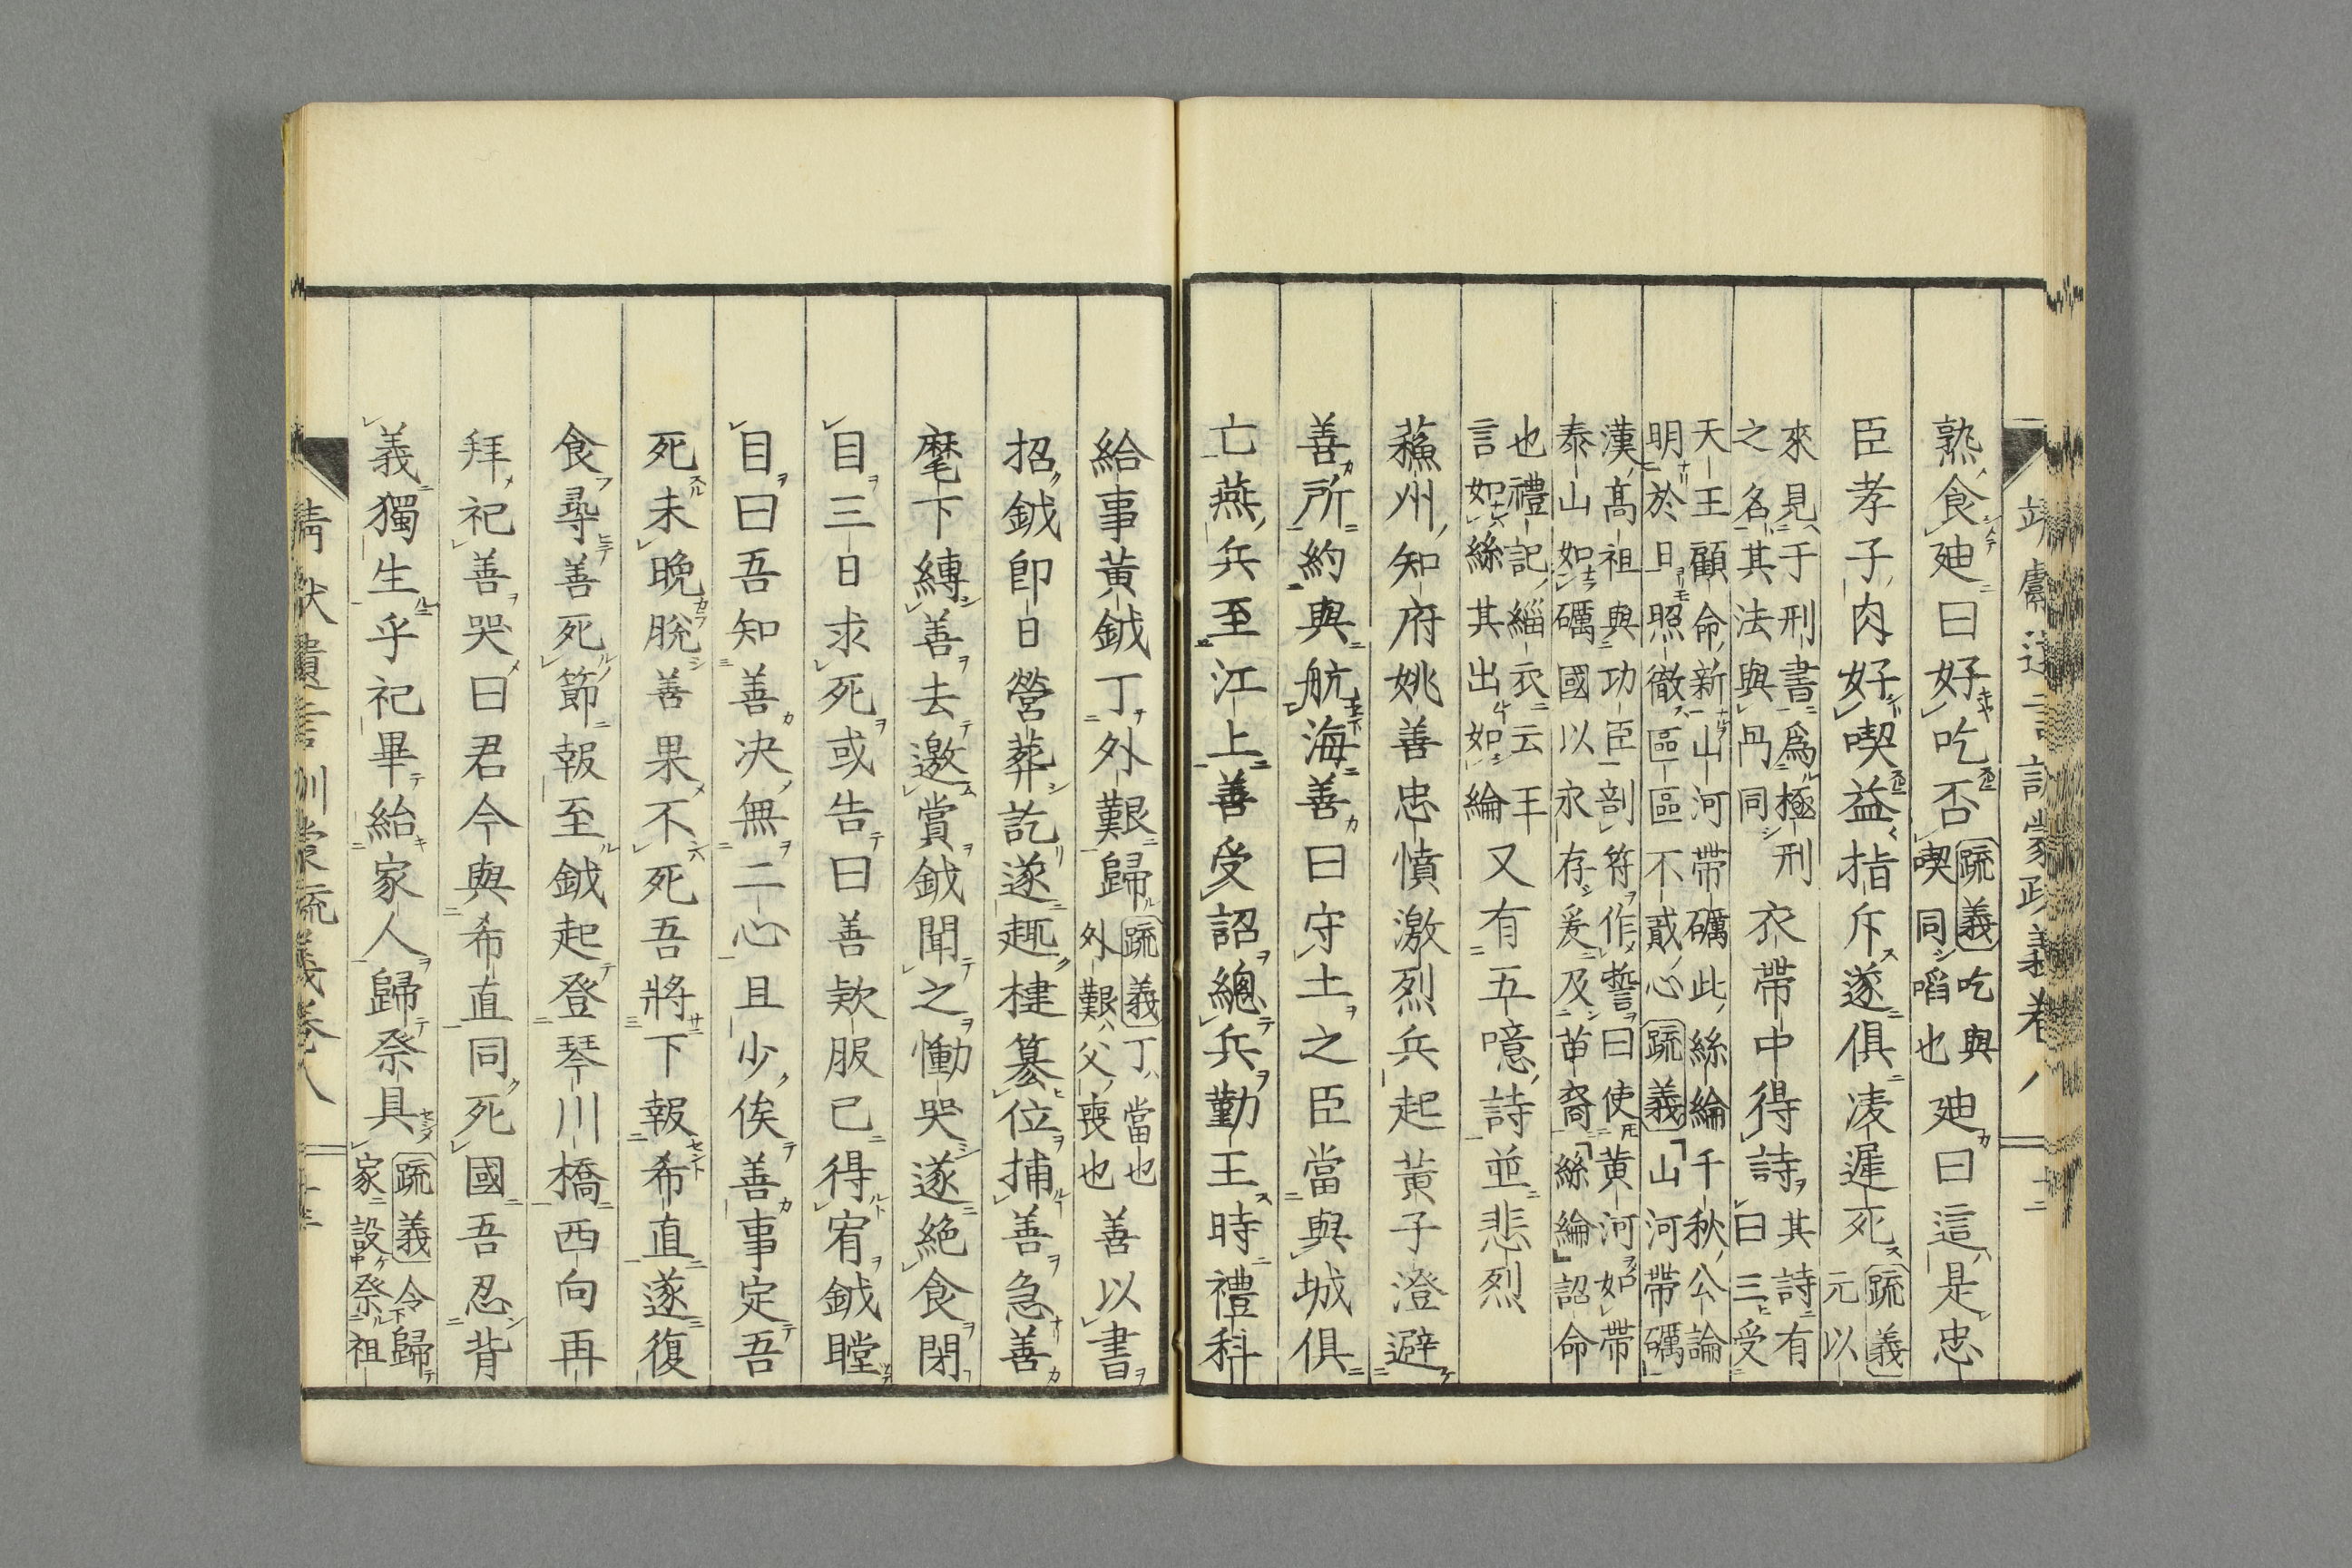 熟食廸曰好吃否
[疏義]吃與
喫同啗也
廸曰這是忠
臣孝子肉好喫益指斥遂俱凌遲死
[疏義]
元以
來見于刑書爲極刑
之名其法與冎同
衣帶中得詩
其詩有
曰三受
天王顧命新山河帶礪此絲綸千秋公論
明於日照徹區區不貳心[疏義]「山河帶礪
漢高祖與功臣剖符作誓曰使黄河如帶
泰山如礪國以永存爰及苗裔「絲綸」詔命
也禮記緇衣云王
言如絲其出如綸
又有五噫詩並悲烈
蘓州知府姚善忠憤激烈兵起黃子澄避
善所約與航海善曰守土之臣當與城俱
亡燕兵至江上善受詔總兵勤王時禮科
給事黃鉞丁外艱歸
[疏義]丁當也
外艱父喪也
善以書
招鉞即日營葬訖遂趣棣簒位捕善急善
麾下縛善去邀賞鉞聞之慟哭遂絶食閉
目三日求死或告曰善欵服已得宥鉞瞠
目曰吾知善决無二心且少俟善事定吾
死未晩脱善果不死吾將下報希直遂復
食尋善死節報至鉞起登琴川橋西向再
拜祀善哭曰君今與希直同死國吾忍背
義獨生乎祀畢紿家人歸祭具
[疏義]令歸
家設祭祖
靖獻遺言訓蒙疏義卷八